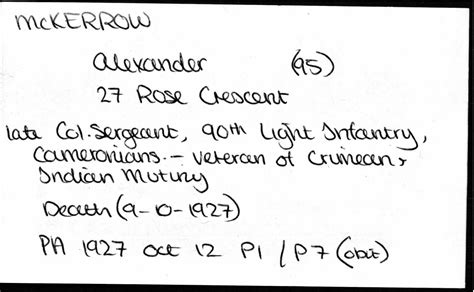 McKERROW
Alexander (95)
27 Rose Crescent
late Col. Sergeant, 90th Light Infantry,
Cameronians. - veteran of Crimean &
Indian Mutiny
Death (9-10-1927)
PA 1927 Oct 12 P1 / P7 (obit)